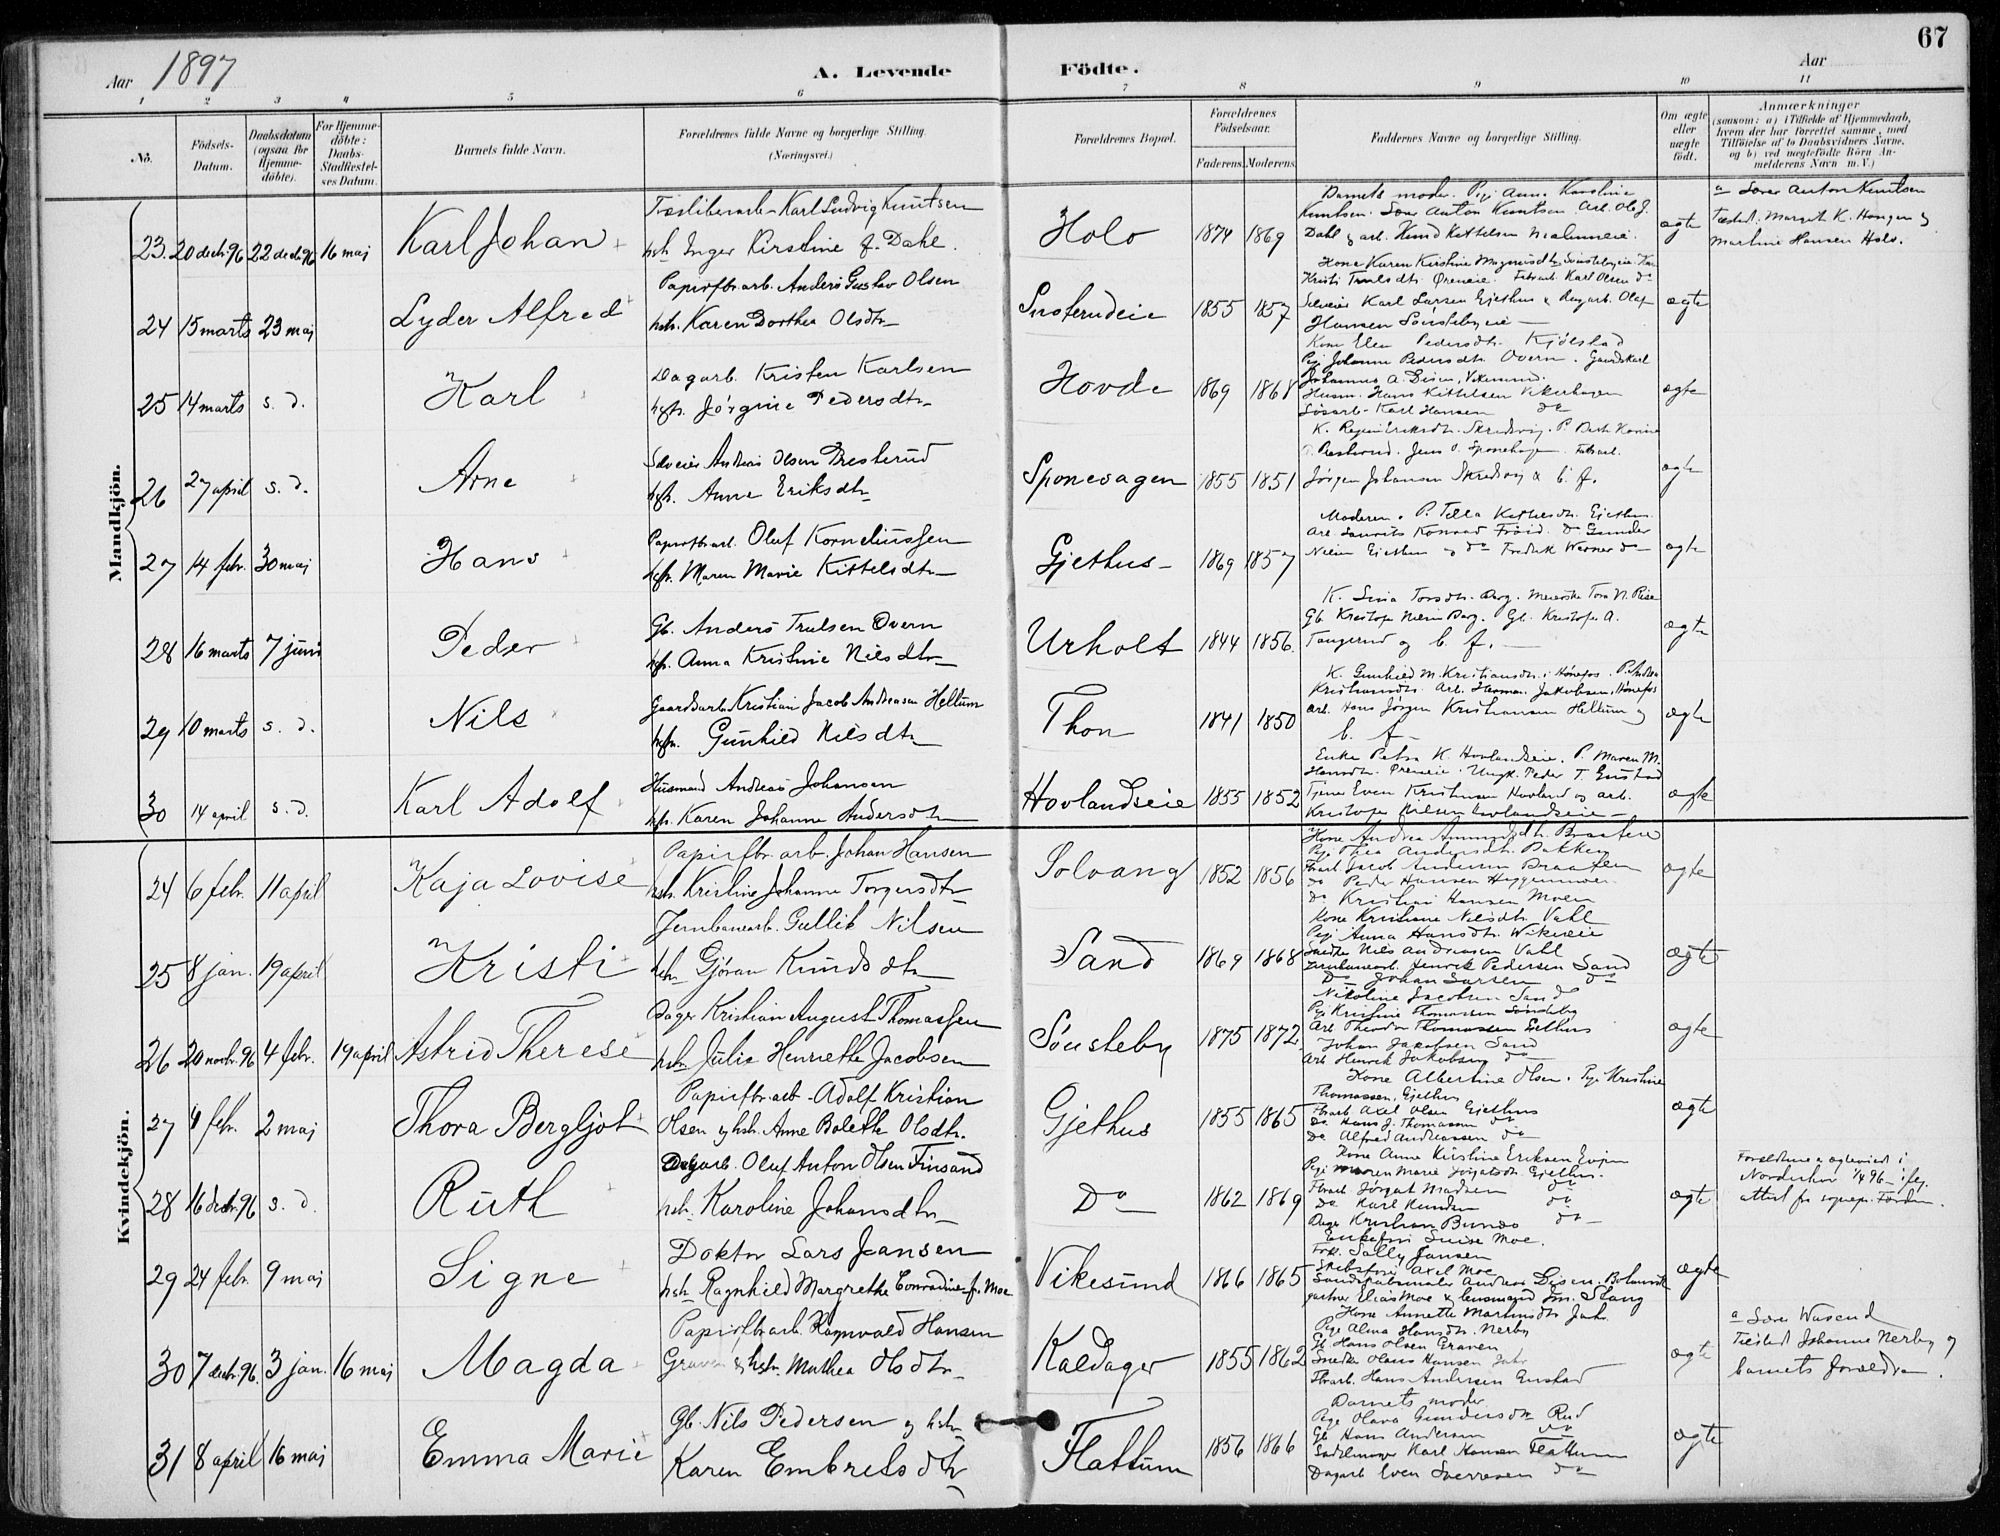 67
Aar 1897
A. Levende Födte.
Aar
1 2 3 4 5 6 7 8 9 10 11
No.
Födsels-Datum.
Daabsdatum (ogsaa for Hjemme-döbte).
For Hjemme-döbte: Daabs-Stadfæstel-ses Datum.
Barnets fulde Navn.
Forældrenes fulde Navne og borgerlige Stilling. (Næringsvei.)
Forældrenes Bopæl.
Forældrenes Födselsaar.
Faderens. Moderens.
Faddernes Navne og borgerlige Stilling.
Om ægte eller uægte födt.
Anmærkninger
(saasom: a) i Tilfælde af Hjemmedaab,
hvem der har forrettet samme, med
Tilföielse af to Daabsvidners Navne,
og b) ved uægtefödte Börn An-
melderens Navn m. V.)
Mandkjön.
23. 20 decbr. 96 22 decbr. 96 16 maj Karl Johan
Træsliberarb. Karl Ludvig Knutsen
hstr. Inger Kirstine f. Dahl.
Holo 1874 1869
Barnets moder. Pige Anne Karoline
Knutsen. Søren Anton Knutsen. Arb. Ole J.
Dahl & arb. Knud Kittelsen
ægte
a Søren Anton Knutsen
Tilsted. Margit K. Haugen &
Martine Hansen Holo.
24 15 marts 23 maj Lyder Alfred
Papirfbr.arb. Anders Gustav Olsen
hstr. Karen Dorthea Olsdtr
Snoterudeie 1855 1857
Kone Karen Kirstine
Kristi Trulsdtr Øreneie. Fabrarb. Karl Olsen do
Selveier Karl Larsen Gjethus & Dagarb. Olaf
Hansen Sønstebyeie
ægte
25 14 marts s. d. Karl
Dagarb. Kristen Karlsen
hstr. Jørgine Pedersdtr
Hovde 1869 1868
Kone Elen Pedersdtr. Kjølstad
Pige Johanne Pedersdtr Overn. Gaardskarl
Johannes A. Disen, Vikesund.
Husm. Hans Kittelsen Vikerhagen
Karl Hansen do
ægte
26 27 april s. d. Arne
Selveier Andreas Olsen Presterud
hstr. Anne Eriksdtr
Sponevagen 1855 1851
Jens O. Sponehagen. Fabrarb.
Jørgen Johansen Skredsvig & b. f.
ægte
27 14 febr. 30 maj Hans
Papirfbrarb. Oluf Korneliussen
hstr. Maren Marie Kittelsdtr
Gjethus 1869 1857
Moderen. P. Tilla Kittelsdtr. Gjethus
Arb. Laurits Konrad Frøid. Do Gunder
Nilsen Gjethus & do Fredrik Werner do
ægte
28 16 marts 7 juni Peder
Gb. Anders Trulsen Overn
hstr. Anna Kristine Nilsdtr
Urholt 1844 1856
Gb. Kristofer Nilsen Berg. Gb. Kristofer A.
Tangerud og b. f.
ægte
29 10 marts s. d. Nils
Gaardsarb. Kristian Jacob Andreasen Hellum
hstr. Gunhild Nilsdtr
Thon 1841 1850
K. Gunhild M. Kristiansdtr. i Hønefos. P. Andrea
Kristiansdtr. Arb. Herman Jakobsen, Hønefos
Arb. Hans Jørgen Kristiansen Hellum og
b. f.
ægte
30 14 april s. d. Karl Adolf
Husmand Andreas Johansen
hstr. Karen Johanne Andersdtr
Hovlandseie 1855 1852
Enke Petra K. Hovlandseie. P. Maren M.
Hansdtr. Øreneie. Ungk. Peder T. Gustad
Tjener Even Kristiansen Hovland og arb.
Kristofer Nilsen Hovlandseie
ægte
Kvindekjön.
24 6 febr. 11 april Kaja Lovise
Papirfbr.arb. Johan Hansen
hstr. Kristine Johanne Torgersdtr
Solvang 1852 1856
Kone Andrea Amundsdtr. Braaten
Pige Thea Andersdtr. Bakken
Fbarb. Jacob Andersen Braaten
do Peder Hansen Heggenmoen
do Kristian Hansen Moen
ægte
25 8 jan. 19 april Kristi
Jernbanearb. Gullik Nilsen
hstr. Gjøran Knudsdtr
Sand 1869 1868
Kone Kristiane Nilsdtr. Vahl
Pige Anna Hansdtr. Wikeseie
Snedker Nils Andreasen Vahl
Jernbanearb. Henrik Pedersen Sand
Do Johan Larsen do
ægte
26 20 novbr. 96 4 febr. 19 april Astrid Therese
Bager Kristian August Thomassen
hstr. Julie Henriette Jacobsen
Sønsteby 1875 1872
Nikoline Jacobsen Sand
Pige Kristine Thomassen Sønsteby
Arb. Theodor Thomassen Gjethus
Johan Jakobsen Sand
Arb. Henrik Jakobsen do
ægte
27 4 febr. 2 maj Thora Bergljot
Papirfbr.arb. Adolf Kristian
Olsen & hstr. Anne Bolette Olsdtr.
Gjethus 1855 1865
Kone Albertine Olsen. Pige Kristine
Thomassen, Gjethus
Fbarb. Axel Olsen Gjethus
Do Hans J. Thomassen do
Do Alfred Andreassen do
ægte
28 16 decbr. 96 s. d. Ruth
Dagarb. Oluf Anton Olsen Finsand
hstr. Karoline Johansdtr
Do 1862 1869
Kone Anne Kirstine Eriksen Evjen
Pige Maren Marie Gjethus.
Fbarb. Jørgen Madsen do
Do Karl Knudsen do
Bager Kristian Bundo do
ægte
Forældrene ægteviet i
Norderhov 1/4 96 ifølge
attest fra sognep.
29 24 febr. 9 maj Signe
Doktor Lars Jansen
hstr. Ragnhild Margrethe Conradine f. Moe
Vikesund 1866 1865
Enkefru Louise Moe.
Frk. Sally Jansen
Skibsfører Axel Moe
Landskabsmaler Andreas Disen. Botanisk
gartner Elias Moe & Lensmand Jon. Stang
ægte
30 7 decbr. 96. 3 jan. 16 maj Magda
Papirfbrarb. Ragnvald Hansen
Graven & hstr. Mathea Olsdtr
Kaldager 1855 1862
Kone Annette Martinsdtr Jahr.
Pige Alma Hansdtr. Nerby
Gb. Hans Olsen Graven
Smed Olaus Hansen Jahr
Fbrarb. Hans Andersen Enstad
ægte
a
Tilsted Johanne Nerby &
barnets forældre.
31 8 april 16 maj Emma Marie
Gb. Nils Pedersen & hstr
Karen Embretsdtr
Flattum 1856 1866
Barnets moder
Pige Olava Gundersdtr Rud
Gb Hans Andersen do
Sadelmager Karl Hansen Flattum
Dagarb Even Sverresen do
ægte